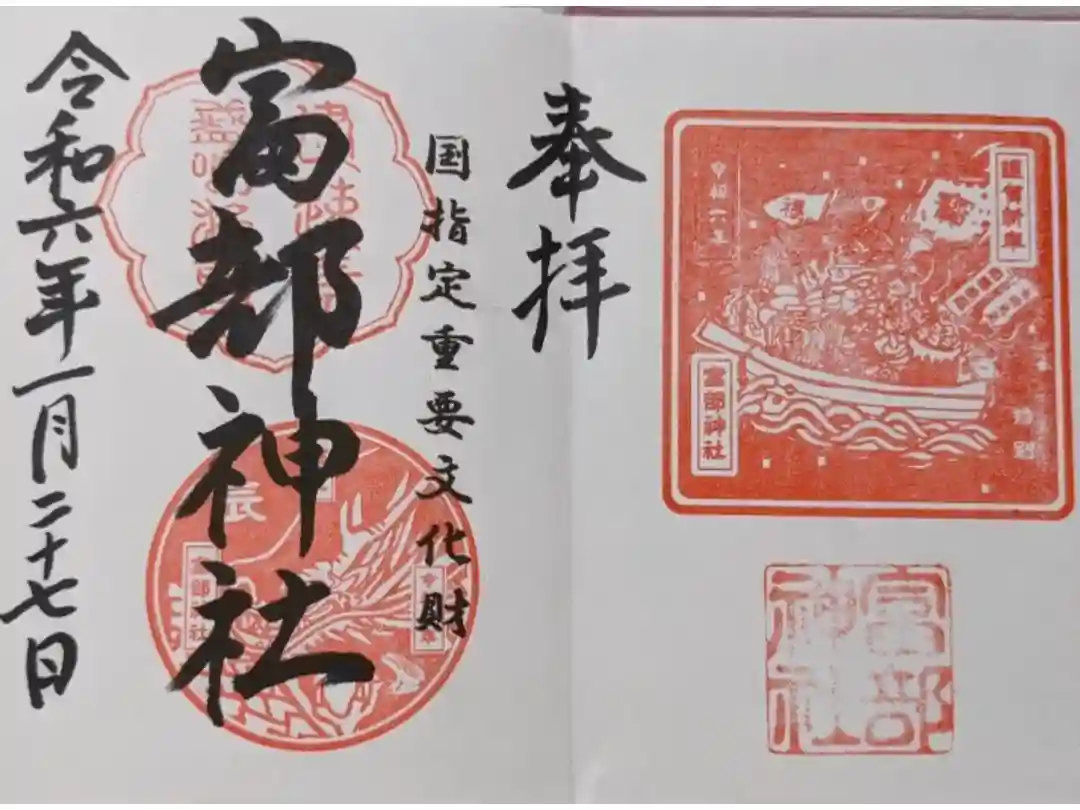 謹賀新年
令和六年
富部神社
富部神社
奉拝
国指定重要文化財
富部神社
辰
富部神社
令和六年一月二十七日